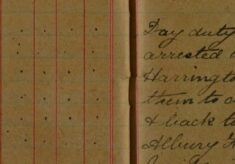 Day duty
arrested
Harringto
them to c
& back to
Albury